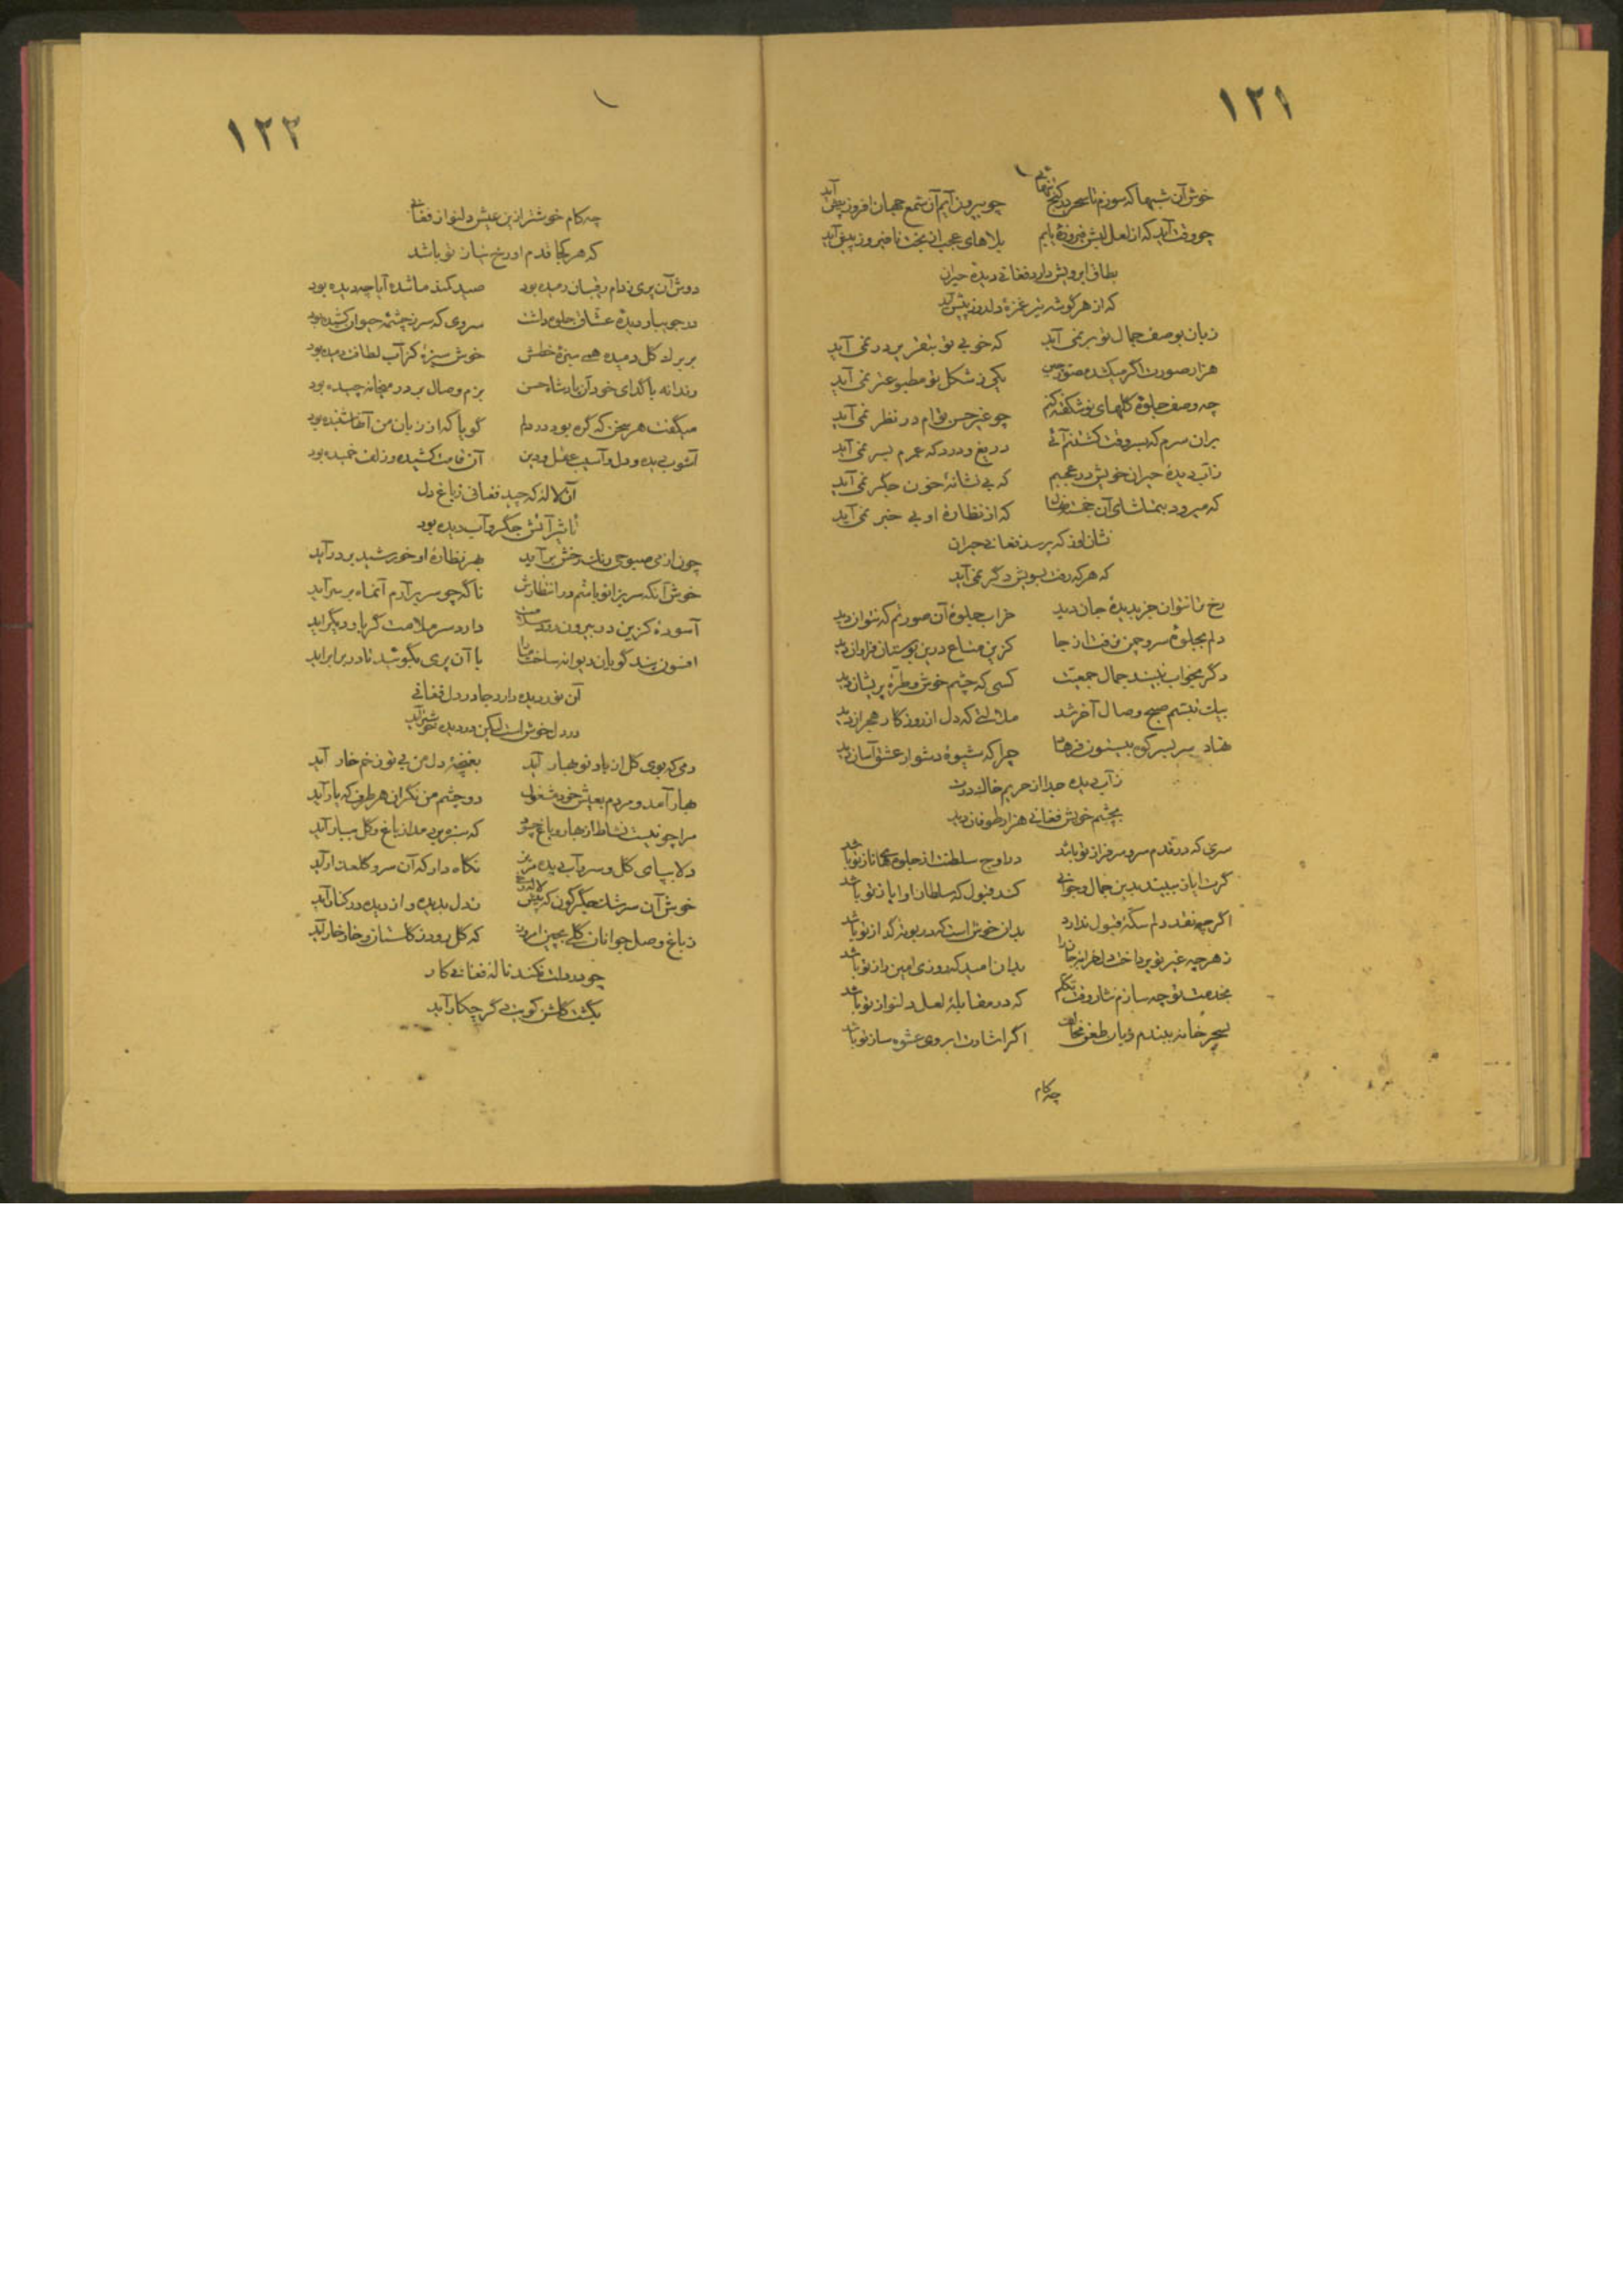 ۱۲۱
خوش آن شبها که سوزم تا سحر در کنج تنهائی چو بیرون آیم آن شمع جهان افروز پیش آید
چو وقت آید که از لعل لبش فیروزه یابم بلاهای عجب از بخت نافیروز پیش آید
بطاق ابرویش دارد فغانی دیده حیران
که از هر گوشه تیر غمزه دلدوز پیش آید
زبان بوصف جمال تو بر نمی آید که خوبی تو بتقریر در نمی آید
هزار صورت اگر میکشد مصور یکی ز شکل تو مطبوعتر نمی آید
چه وصف جلوه گلهای نوشکفته کنم چو غیر حسن توام در نظر نمی آید
بران سرم که بسروقت کشتنم آئی دریغ و درد که عمرم بسر نمی آید
ز آب دیده حیران خویش در عجبم که بی نشانه خون جگر نمی آید
که میرود بتماشای آن خجسته که از نظاره او بی خبر نمی آید
نشان او ز که پرسد فغانی حیران
که هر که رفت بسویش دگر نمی آید
رخ تو نتوان جز بدیده جان دید خراب جلوه آن صورتم که نتوان دید
دلم بجلوه سرو چمن نرفت از جا کزین متاع درین بوستان فراوان دید
دگر بخواب نبیند جمال جمعیت کسی که چشم خوش و طره پریشان دید
بیک تبسم صبح وصال آخر شد ملالتی که دل از روزگار هجران دید
نهاد سر بسر کوی بیستون فرهاد چرا که شیوه دشوار عشق آسان دید
ز آب دیده جدا از حریم خاک درت
بچشم خویش فغانی هزار طوفان دید
سری که در قدم سرو سرفراز تو باشد در اوج سلطنت از جلوه های ناز تو باشد
گرت ایاز ببیند بدین جمال و جوانی کند قبول که سلطان او ایاز تو باشد
اگر چه نقد دلم سکه قبول ندارد بدان خوش است که در بوته گداز تو باشد
ز هر چه غیر تو پرداخت دل خزانه جانرا بدان امید که روزی امین راز تو باشد
بخدمت تو چه سازم نثار وقت تکلم که در مقابله لعل دلنواز تو باشد
بسحر خانه ببندم زبان طعن مخالف اگر اشارت ابروی عشوه ساز تو باشد
چه کام
۱۲۲
چه کام خوشتر ازین عیش دلنواز فغانی
که هر کجا قدم او رخ نیاز تو باشد
دوش آن پری ز دام رقیبان رمیده بود صید کمند ما شده آیا چه دیده بود
در جویبار دیده عشاق جلوه داشت سروی که سر ز چشمه حیوان کشیده بود
بر برگ گل دمیده همی سبزه خطش خوش سبزه کز آب لطافت دمیده بود
رندانه با گدای خود آن پادشاه حسن بزم وصال بر در میخانه چیده بود
میگفت هر سخن که گره بود در دلم گویا که از زبان من آنها شنیده بود
آشوب دیده و دل و آسیب عقل و دین آن قامت کشیده و زلف خمیده بود
آن لاله که چید فغانی ز باغ دل
تاثیر آتش جگر و آب دیده بود
چون از می صبوحی رنگ رخش برآید بهر نظاره او خورشید بر در آید
خوش آنکه سر بزانو باشم در انتظارش ناگه چو سر برآرم آنماه بر سر آید
آسوده کزین در بیرون رود سلامت دارد سر ملامت گر بار دیگر آید
افسون پند گویان دیوانه ساخت ما را با آن پری بگوئید تا در برابر آید
آن نور دیده دارد جا در دل فغانی
در دل خوش است لیکن در دیده خوشتر آید
دمی که بوی گل از باد نوبهار آید بغنچه دل من بی تو زخم خار آید
بهار آمد و مردم بعیش خود مشغول دو چشم من نگران هر طرف که یار آید
مرا چو نیست نشاط از بهار و باغ چه سود که سبزه بردمد از باغ و گل ببار آید
دلا بپای گل و سرو آب دیده مریز نگاه دار که آن سرو گلعذار آید
خوش آن سرشک جگرگون که پیش لاله رخی ز دل بدیده و از دیده در کنار آید
ز باغ وصل جوانان گلی بچین امروز که گل رود ز گلستان و خار خار آید
چو در دلت نکند ناله فغانی کار
بگشت گلشن کویت دگر چکار آید